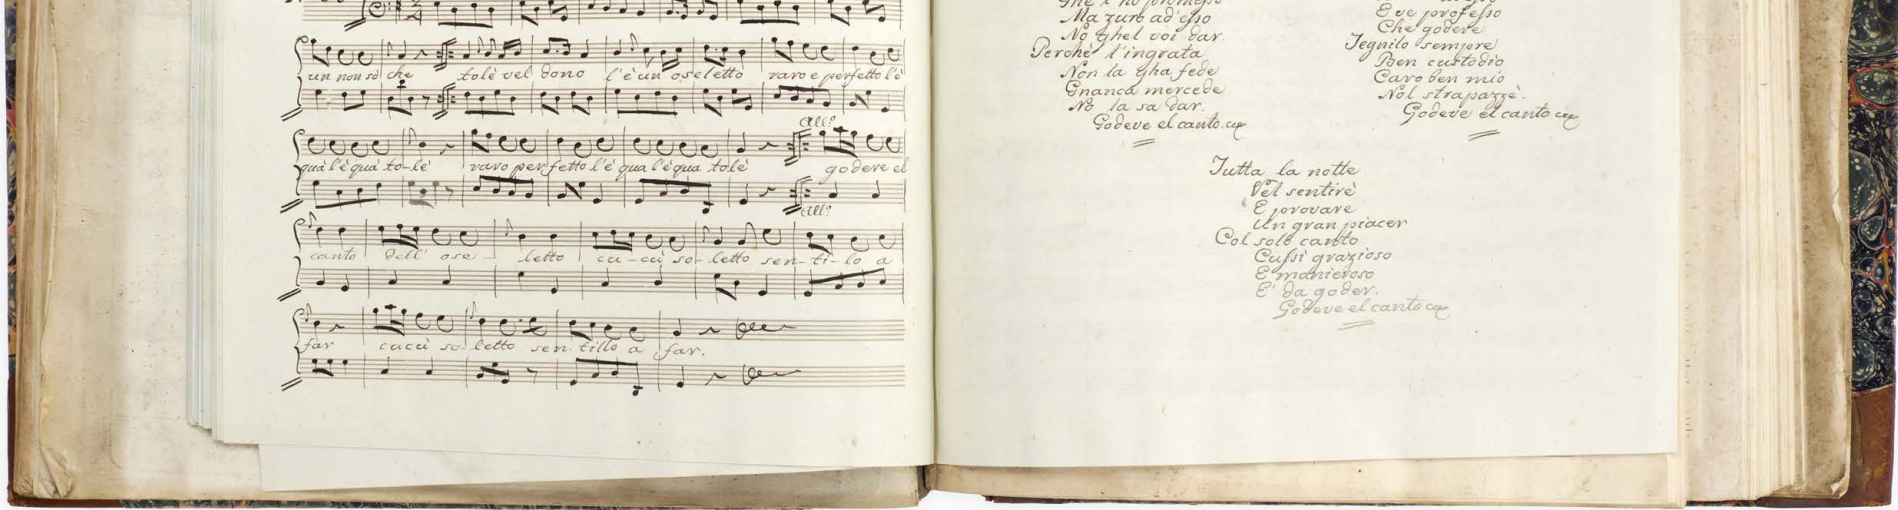 un non sò che tolè vel dono l'è un oseletto raro e perfetto l'è
quà l'è quà to-lè raro perfetto l'è qua l'è qua tolè godere el
All.º
All.º
canto dell' ose - letto cu-cù so-letto sen-ti-lo a
far cucù so-letto sen-tillo a far.
Ma zurò ad'esso
No ghel voi dar.
Perchè l'ingrata
Non la gha fede
Gnanca mercede
No la sa dar.
Godeve el canto
E ve professo
Che godere
Tegnilo sempre
Ben custodio
Caro ben mio
Nol strapazzè.
Godeve el canto
Tutta la notte
Vel sentirè
E provare
Un gran piacer
Col solo canto
Cussì grazioso
E manieroso
E' da goder.
Godeve el canto